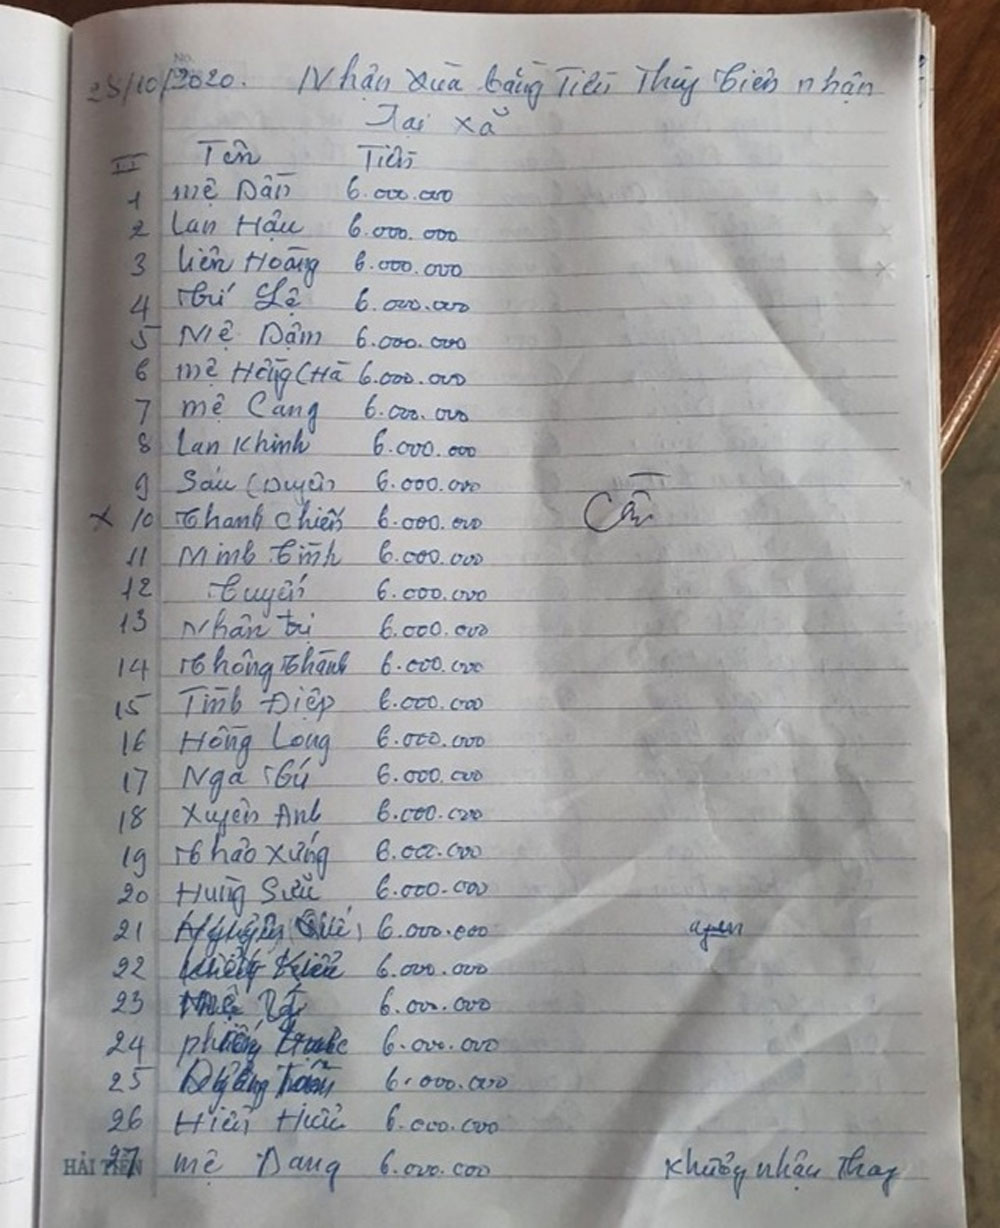 No.
28/10/2020. Nhận quà bằng Tiền Thủy Tiên nhận
Tại xã
TT Tên Tiền
1 mệ Dần 6.000.000
2 Lan Hậu 6.000.000
3 Liên Hoàng 6.000.000
4 Trí Lệ 6.000.000
5 Mệ Dậm 6.000.000
6 mệ Hồng (Hà 6.000.000
7 mệ Cang 6.000.000
8 Lan Khinh 6.000.000
9 Sáu (Duyên 6.000.000
x 10 Thanh Chiến 6.000.000 Cân
11 Minh Tình 6.000.000
12 Tuyến 6.000.000
13 Nhân trị 6.000.000
14 Thông Thành 6.000.000
15 Tình Điệp 6.000.000
16 Hồng Long 6.000.000
17 Nga Tú 6.000.000
18 Xuyên Anh 6.000.000
19 Thảo Xứng 6.000.000
20 Hùng Sửu 6.000.000
21 6.000.000
22 6.000.000
23 6.000.000
24 6.000.000
25 6.000.000
26 Hiền Hữu 6.000.000
HẢI TIẾN 27 mệ Dang 6.000.000 Khương nhận Thay